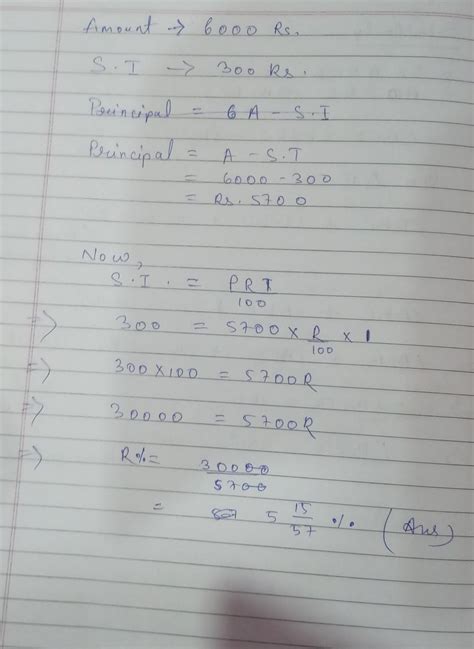 Amount → 6000 Rs.
S.I → 300 Rs.
Principal = 6 A - S.I
Principal = A - S.I
= 6000 - 300
= Rs. 5700
Now,
S.I. = PRT/100
⇒ 300 = 5700 × R/100 × 1
⇒ 300 × 100 = 5700R
⇒ 30000 = 5700R
⇒ R% = 30000/5700
= 5 15/57 % (Ans)